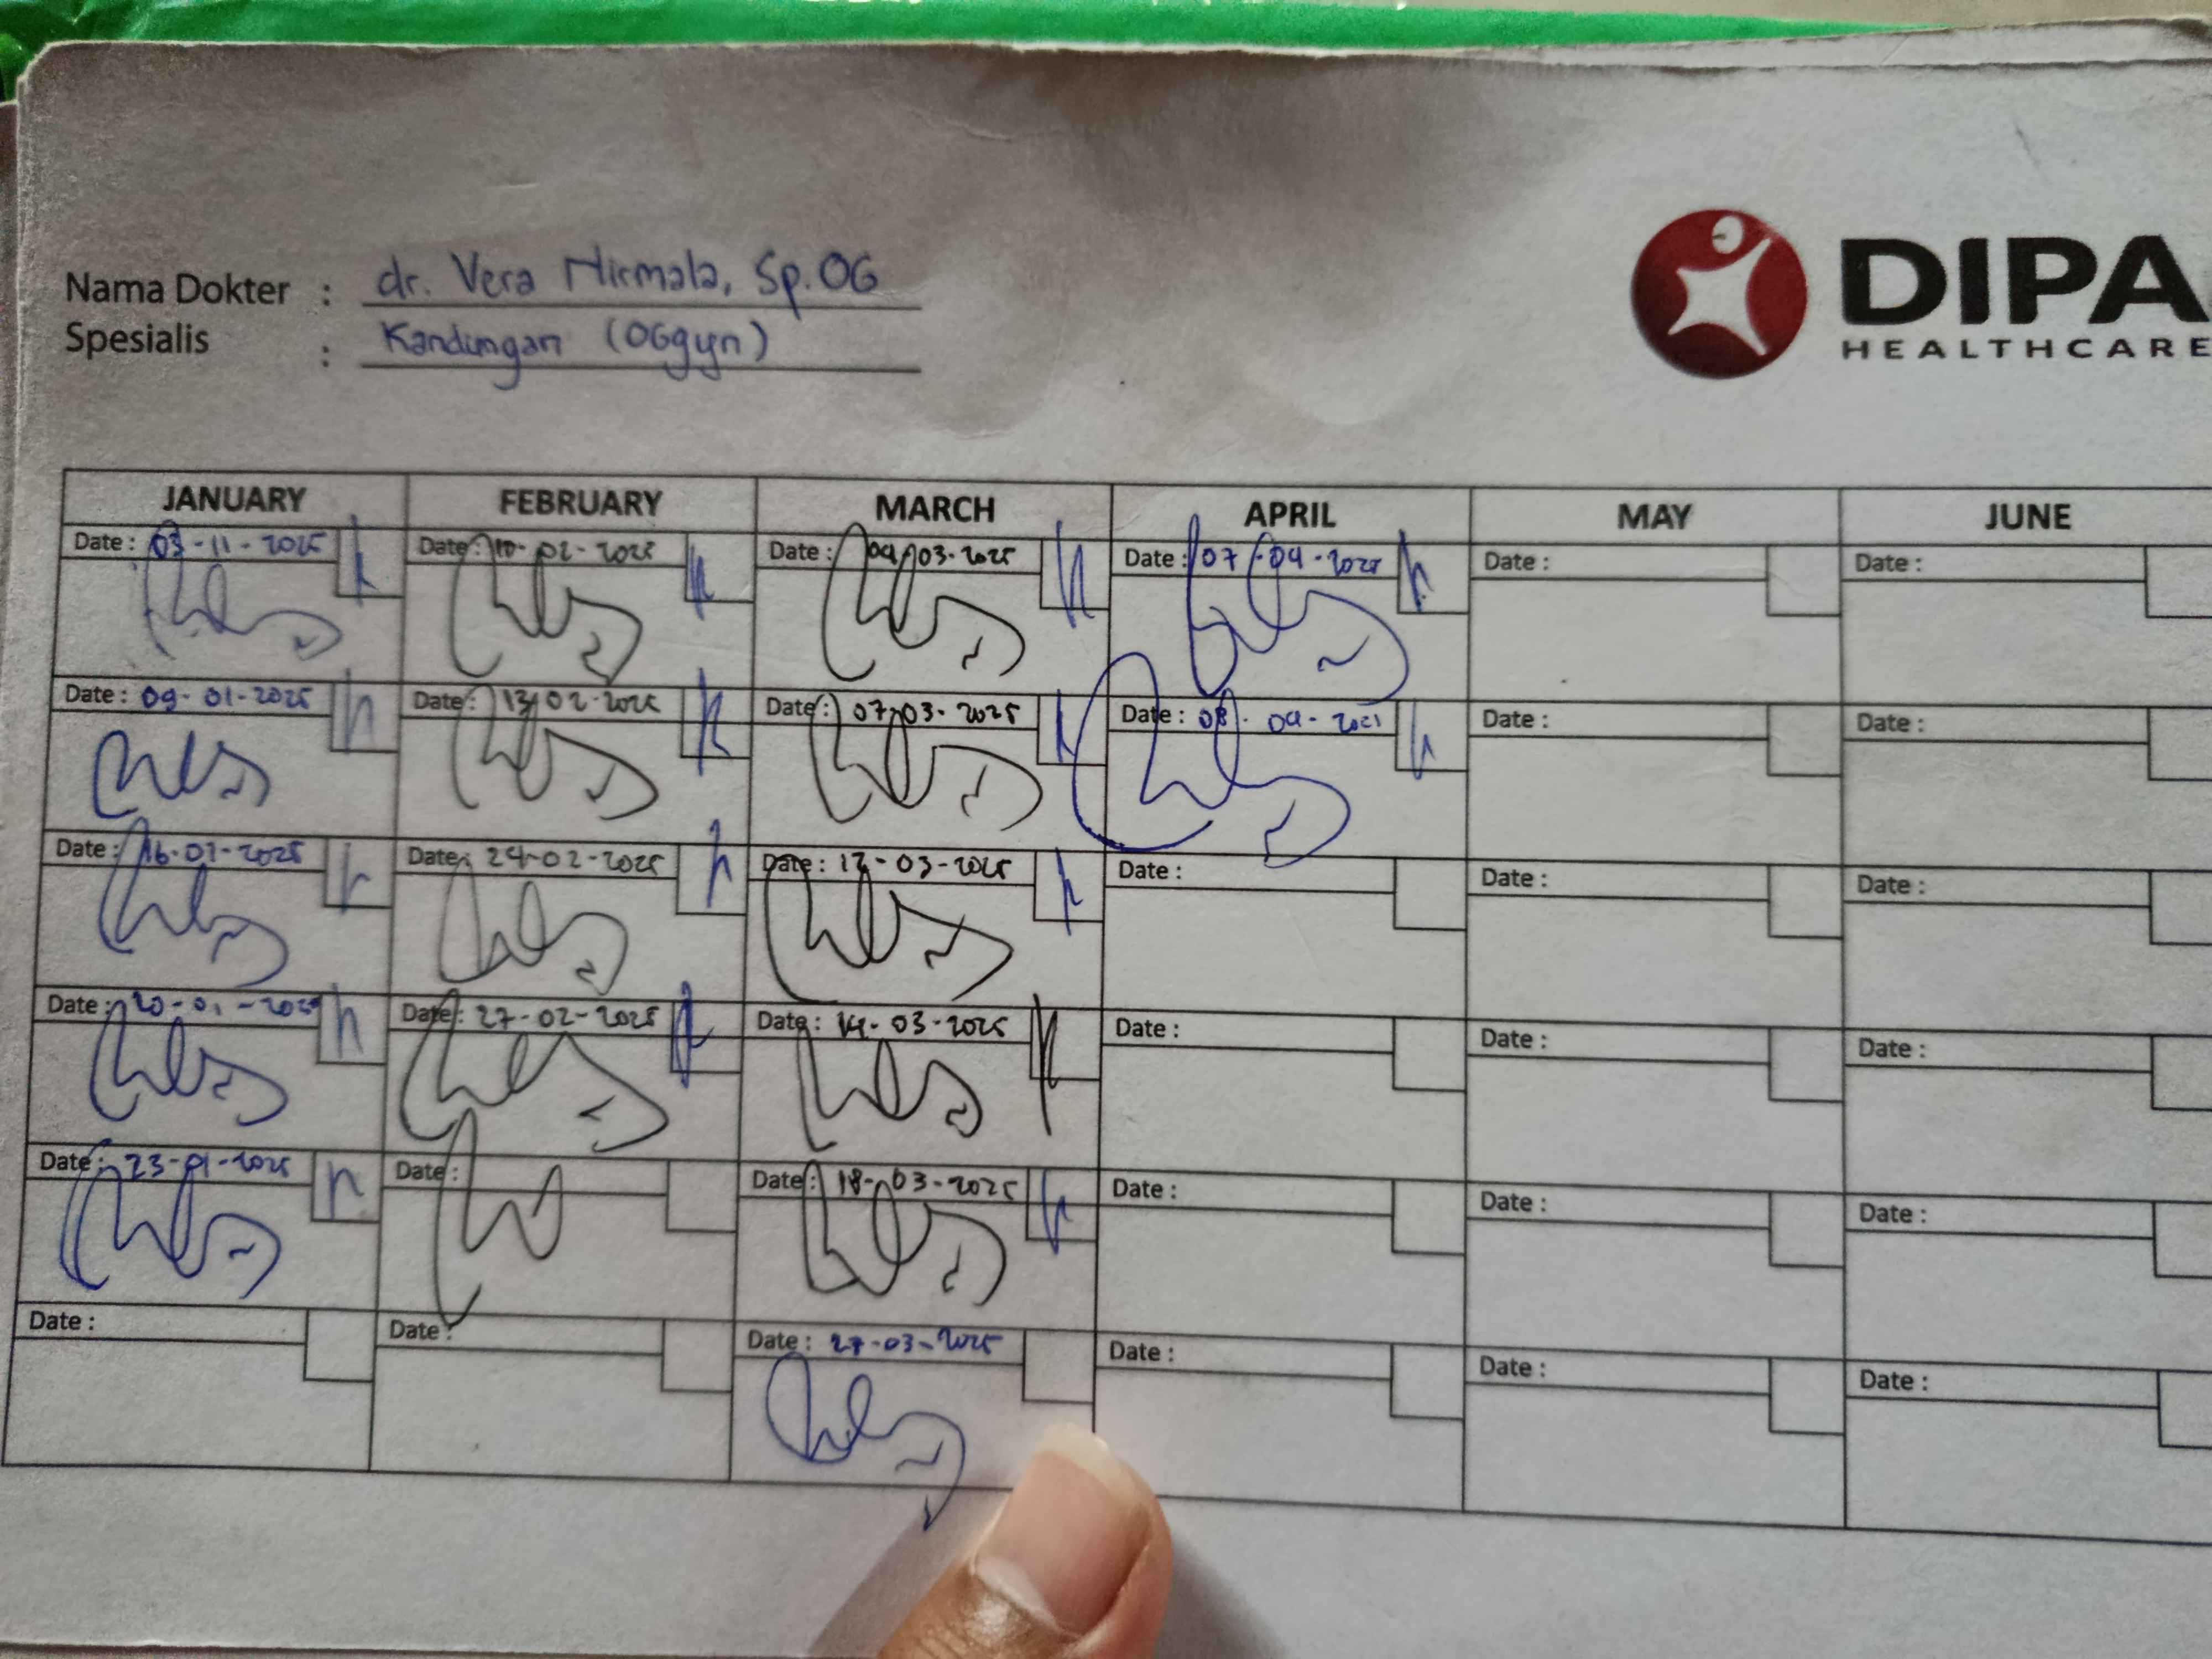 Nama Dokter : dr. Vera Nirmala, Sp.OG
Spesialis : Kandungan (OGgyn)
DIPA
HEALTHCARE
JANUARY FEBRUARY MARCH APRIL MAY JUNE
Date : 03-11-2025 Date : 10-02-2025 Date : 04-03-2025 Date : 07-04-2025 Date : Date :
Date : 09-01-2025 Date : 13-02-2025 Date : 07-03-2025 Date : 08-04-2021 Date : Date :
Date : 16-01-2025 Date : 24-02-2025 Date : 12-03-2025 Date : Date : Date :
Date : 20-01-2025 Date : 27-02-2025 Date : 14-03-2025 Date : Date : Date :
Date : 23-01-2025 Date : Date : 18-03-2025 Date : Date : Date :
Date : Date : Date : 27-03-2025 Date : Date : Date :